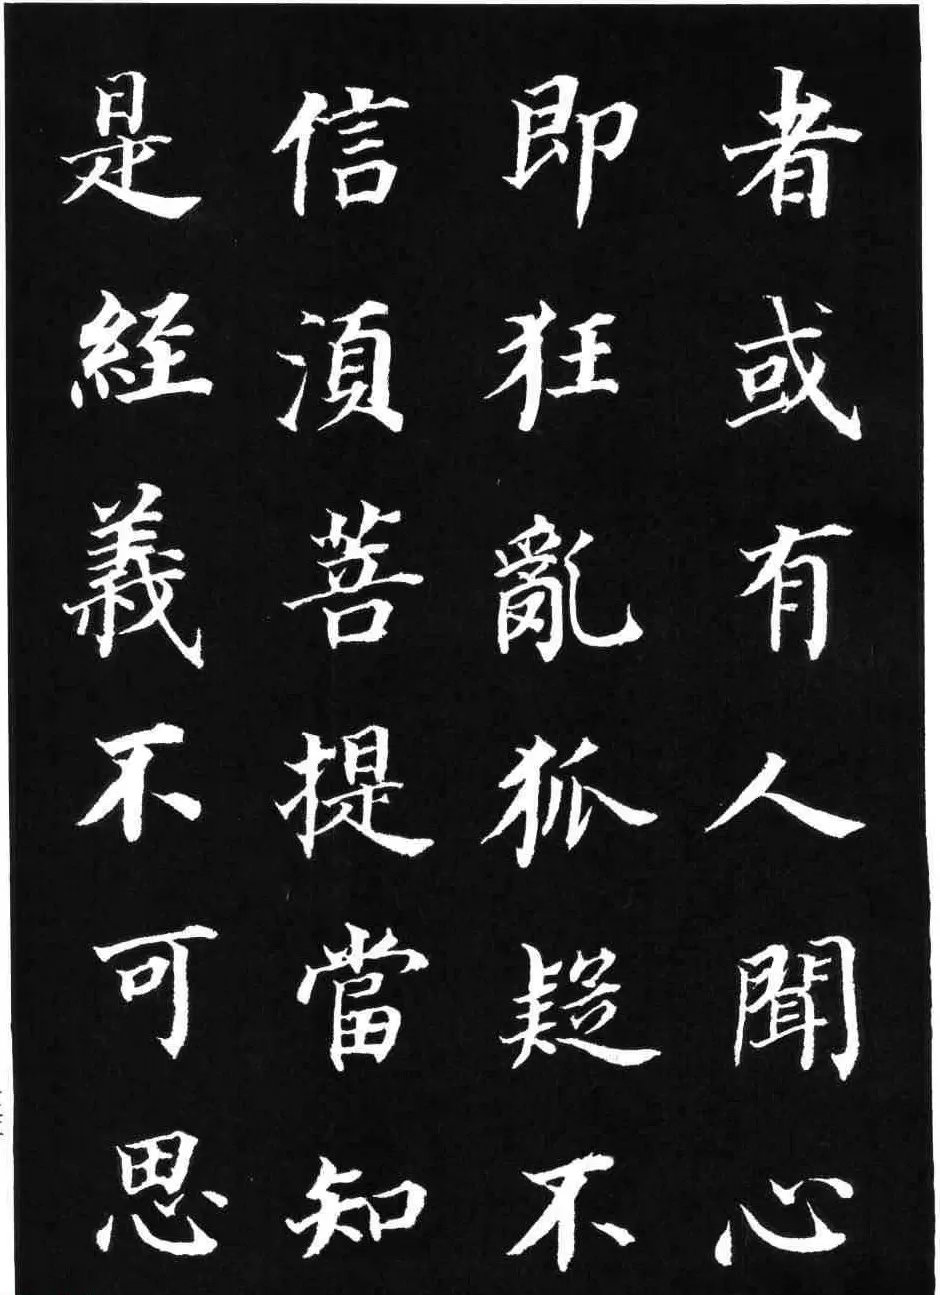 者或有人聞心
即狂亂狐疑不
信湏菩提當知
是經義不可思